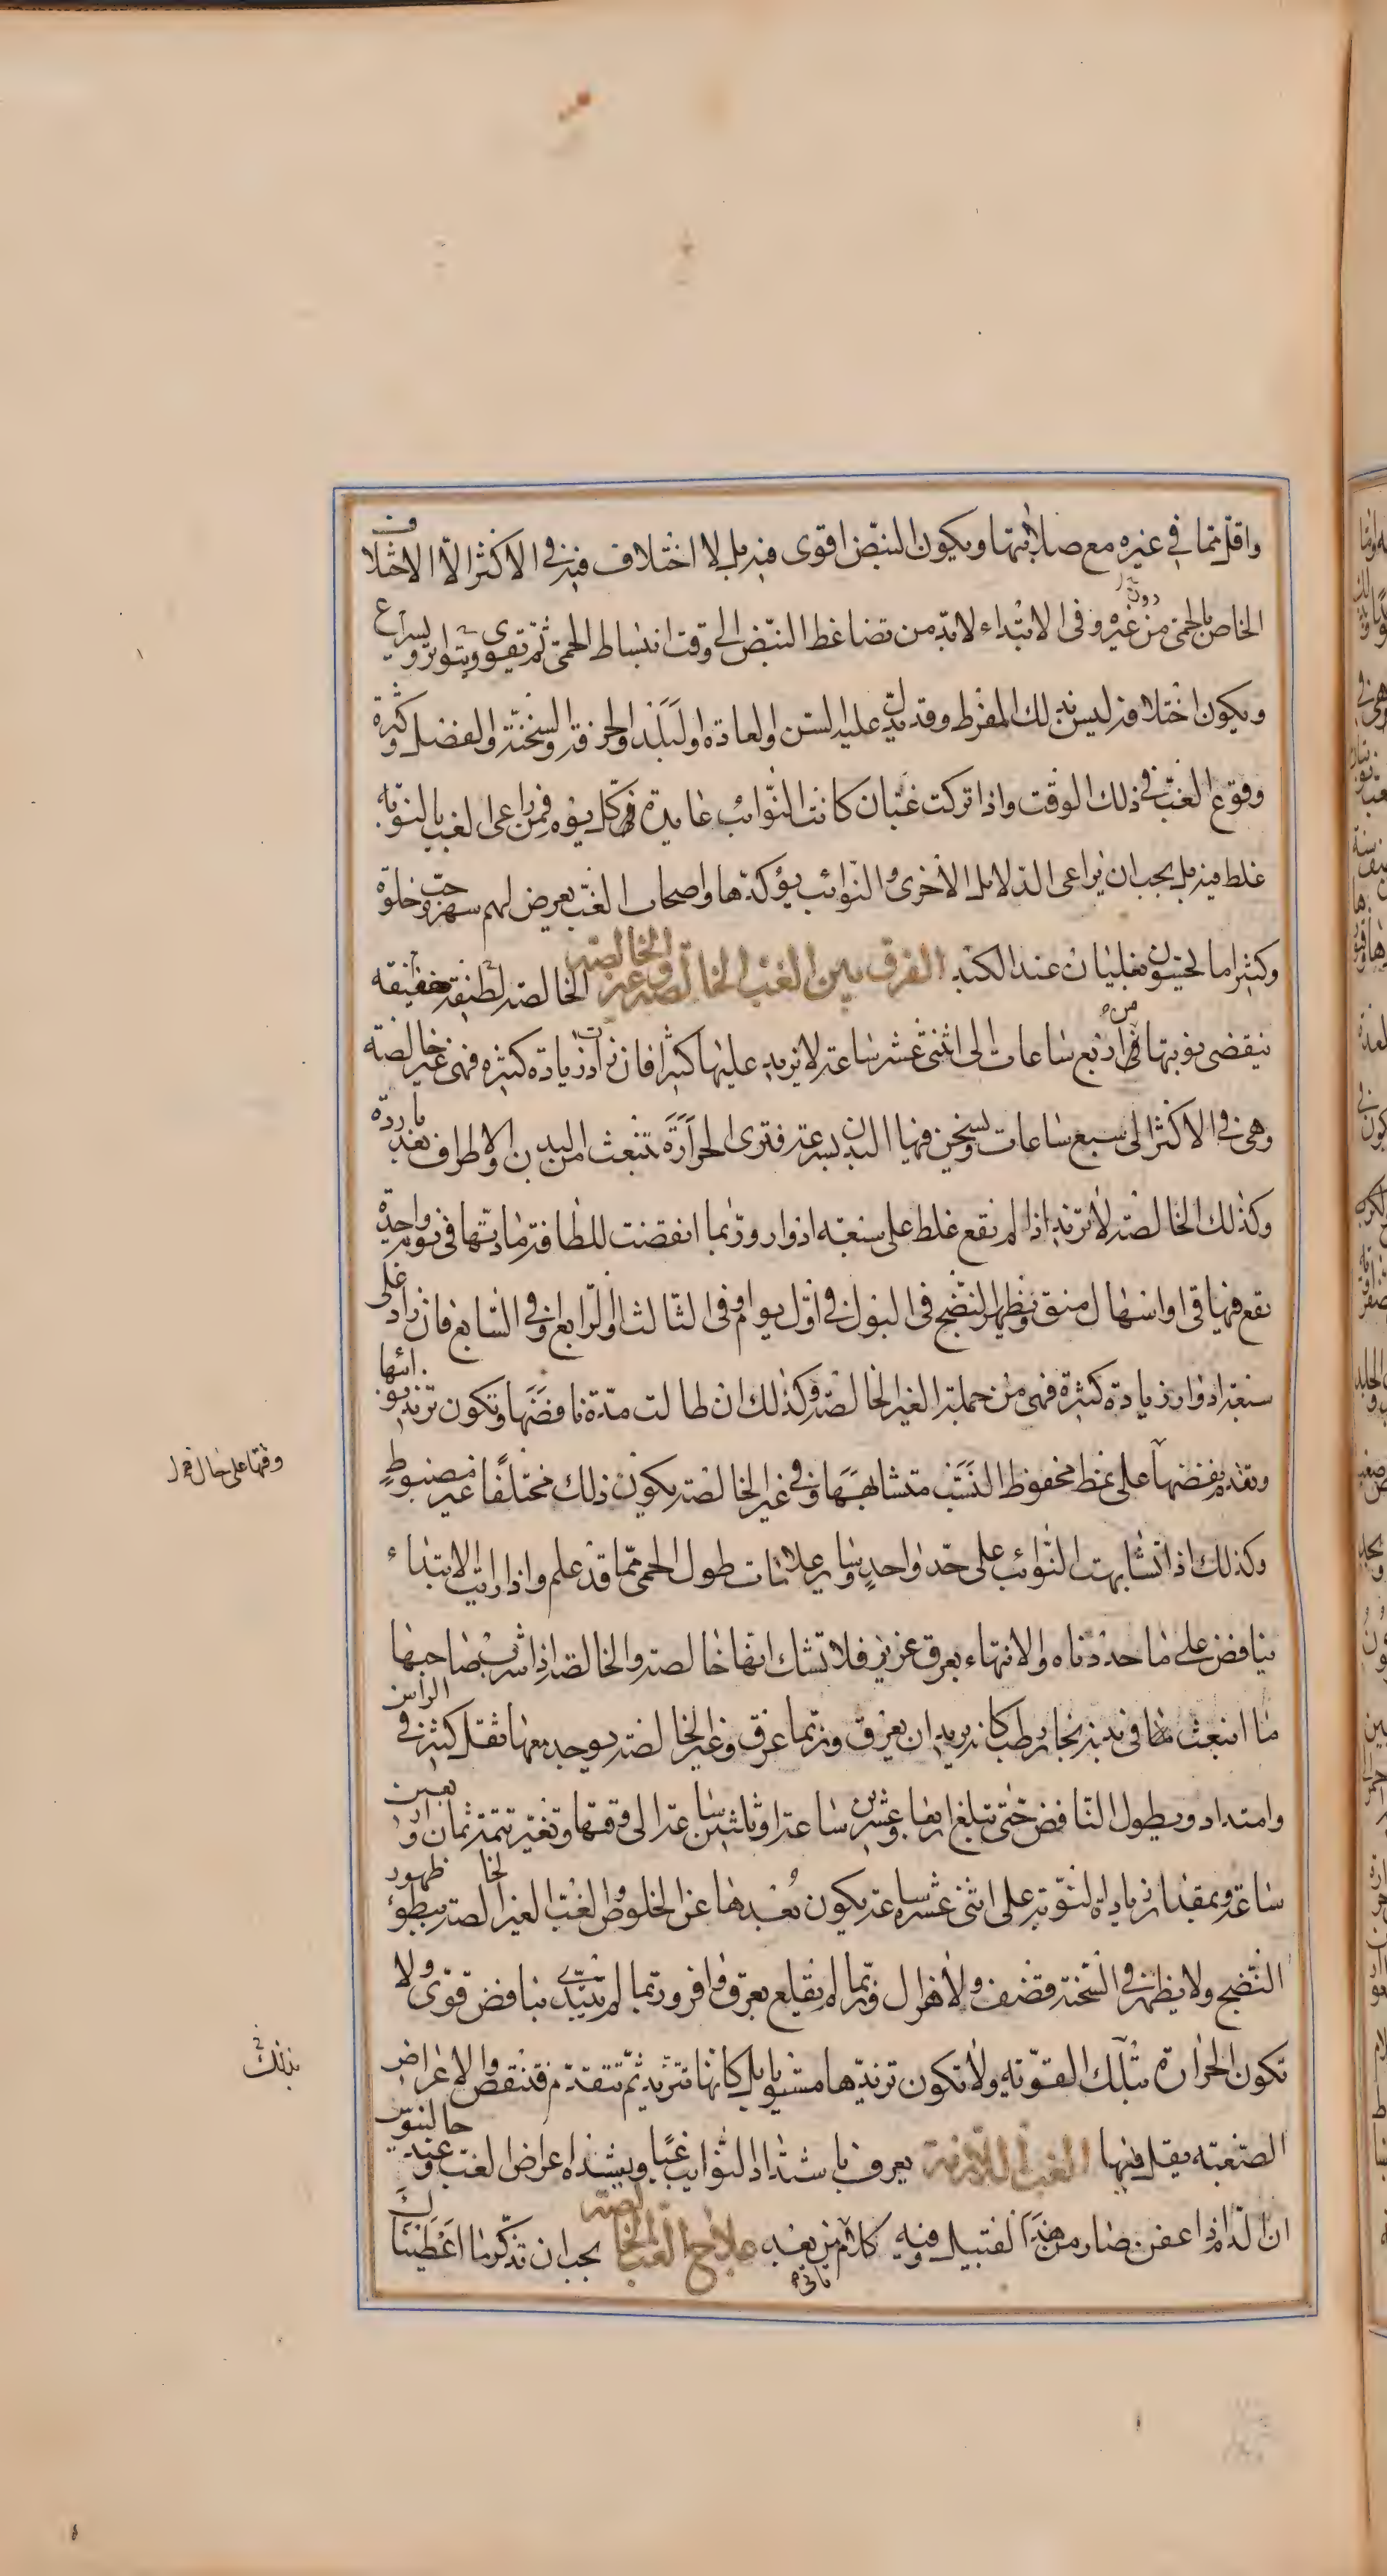 واقل مما في غيره مع صلابتها ويكون النبض اقوى فيه بل لا اختلاف فيه في الاكثر الا الاختلاف
الخاص بالحمى دون غيره وفى الابتداء لابد من تضاغط النبض الى وقت انبساط الحمى ثم تقوى ويتواتر ويسرع
ويكون اختلافه ليس بذلك المفرط وقد يدل عليه السن والعادة والبلد والحرفة والسخنة والفضل وكثرة
وقوع الغب في ذلك الوقت واذا تركت غبان كانت النوائب عايدة في كل يوم فمن راعى الغب بالنوبة
غلط فيه بل يجب ان يراعى الدلايل الاخرى والنوائب يؤكدها واصحاب الغب يعرض لهم سهر وحب خلوة
وكثيرا ما يحسون بغليان عند الكبد الفرق بين الغب الخالصة وغير الخالصة الخالصة لطيفة خفيفة
ينقضى نوبتها من اربع ساعات الى اثنتى عشر ساعة لا يزيد عليها كثيرا فان زادت زيادة كثيرة فهي غير خالصة
وهى في الاكثر الى سبع ساعات ويسخن فيها البدن بسرعة فترى الحرارة تنبعث من البدن والاطراف بعد باردة
وكذلك الخالصة لا تزيد اذا لم يقع غلط على سبعة ادوار وربما انقضت للطافة مادتها في نوبة واحدة
يقع فيها قئ او اسهال منق ويظهر النضج فى البول في اول يوم او فى الثالث او الرابع وفي السابع فان زاد على
سبعة ادوار زيادة كثيرة فهى من جملة الغير الخالصة وكذلك ان طالت مدة نافضها وتكون تزيد نوائبها
وتقدم بعضها على نمط محفوظ النسب متشابهها وفي غير الخالصة يكون ذلك مختلفا غير مضبوط
وقتها على حال
وكذلك اذا تشابهت النوائب على حد واحد وساير علامات طول الحمى مما قد علم واذا رايت الابتداء
بنافض على ما حددناه والانتهاء بعرق غزير فلا تشك انها خالصة والخالصة اذا شرب صاحبها
ما انبعث من بدنه بخار رطب كانه يريد ان يعرق وربما عرق وغير الخالصة يوجد معها ثقل كثير في الراس
وامتداد ويطول النافض حتى تبلغ اربعا وعشرين ساعة او ثلثين ساعة الى وقتها وتغير تتمة ثمان واربعين
ساعة وبمقدار زيادة النوبة على اثنى عشر ساعة يكون بعدها عن الخلوص والغب الغير الخالصة يبطؤ ظهور
النضج ولا يظهر في السخنة قضف ولا هزال وربما لم يقلع بعرق وافر وربما لم تبتدئ بنافض قوى ولا
تكون الحرارة بتلك القوية ولا تكون تزيدها مشيويا بل كانها تتزيد ثم تتقدم فتنقص والاعراض
بذلك
الصعبة يقل فيها الغب اللازمة يعرف باشتداد النوايب غبا ويشتد اعراض الغب وعند جالنيوس
ان الدم اذا عفن صار من هذا القبيل وفيه كلام ياتى من بعد علاج الغب الخالصة يجب ان تتذكر ما اعطيناك